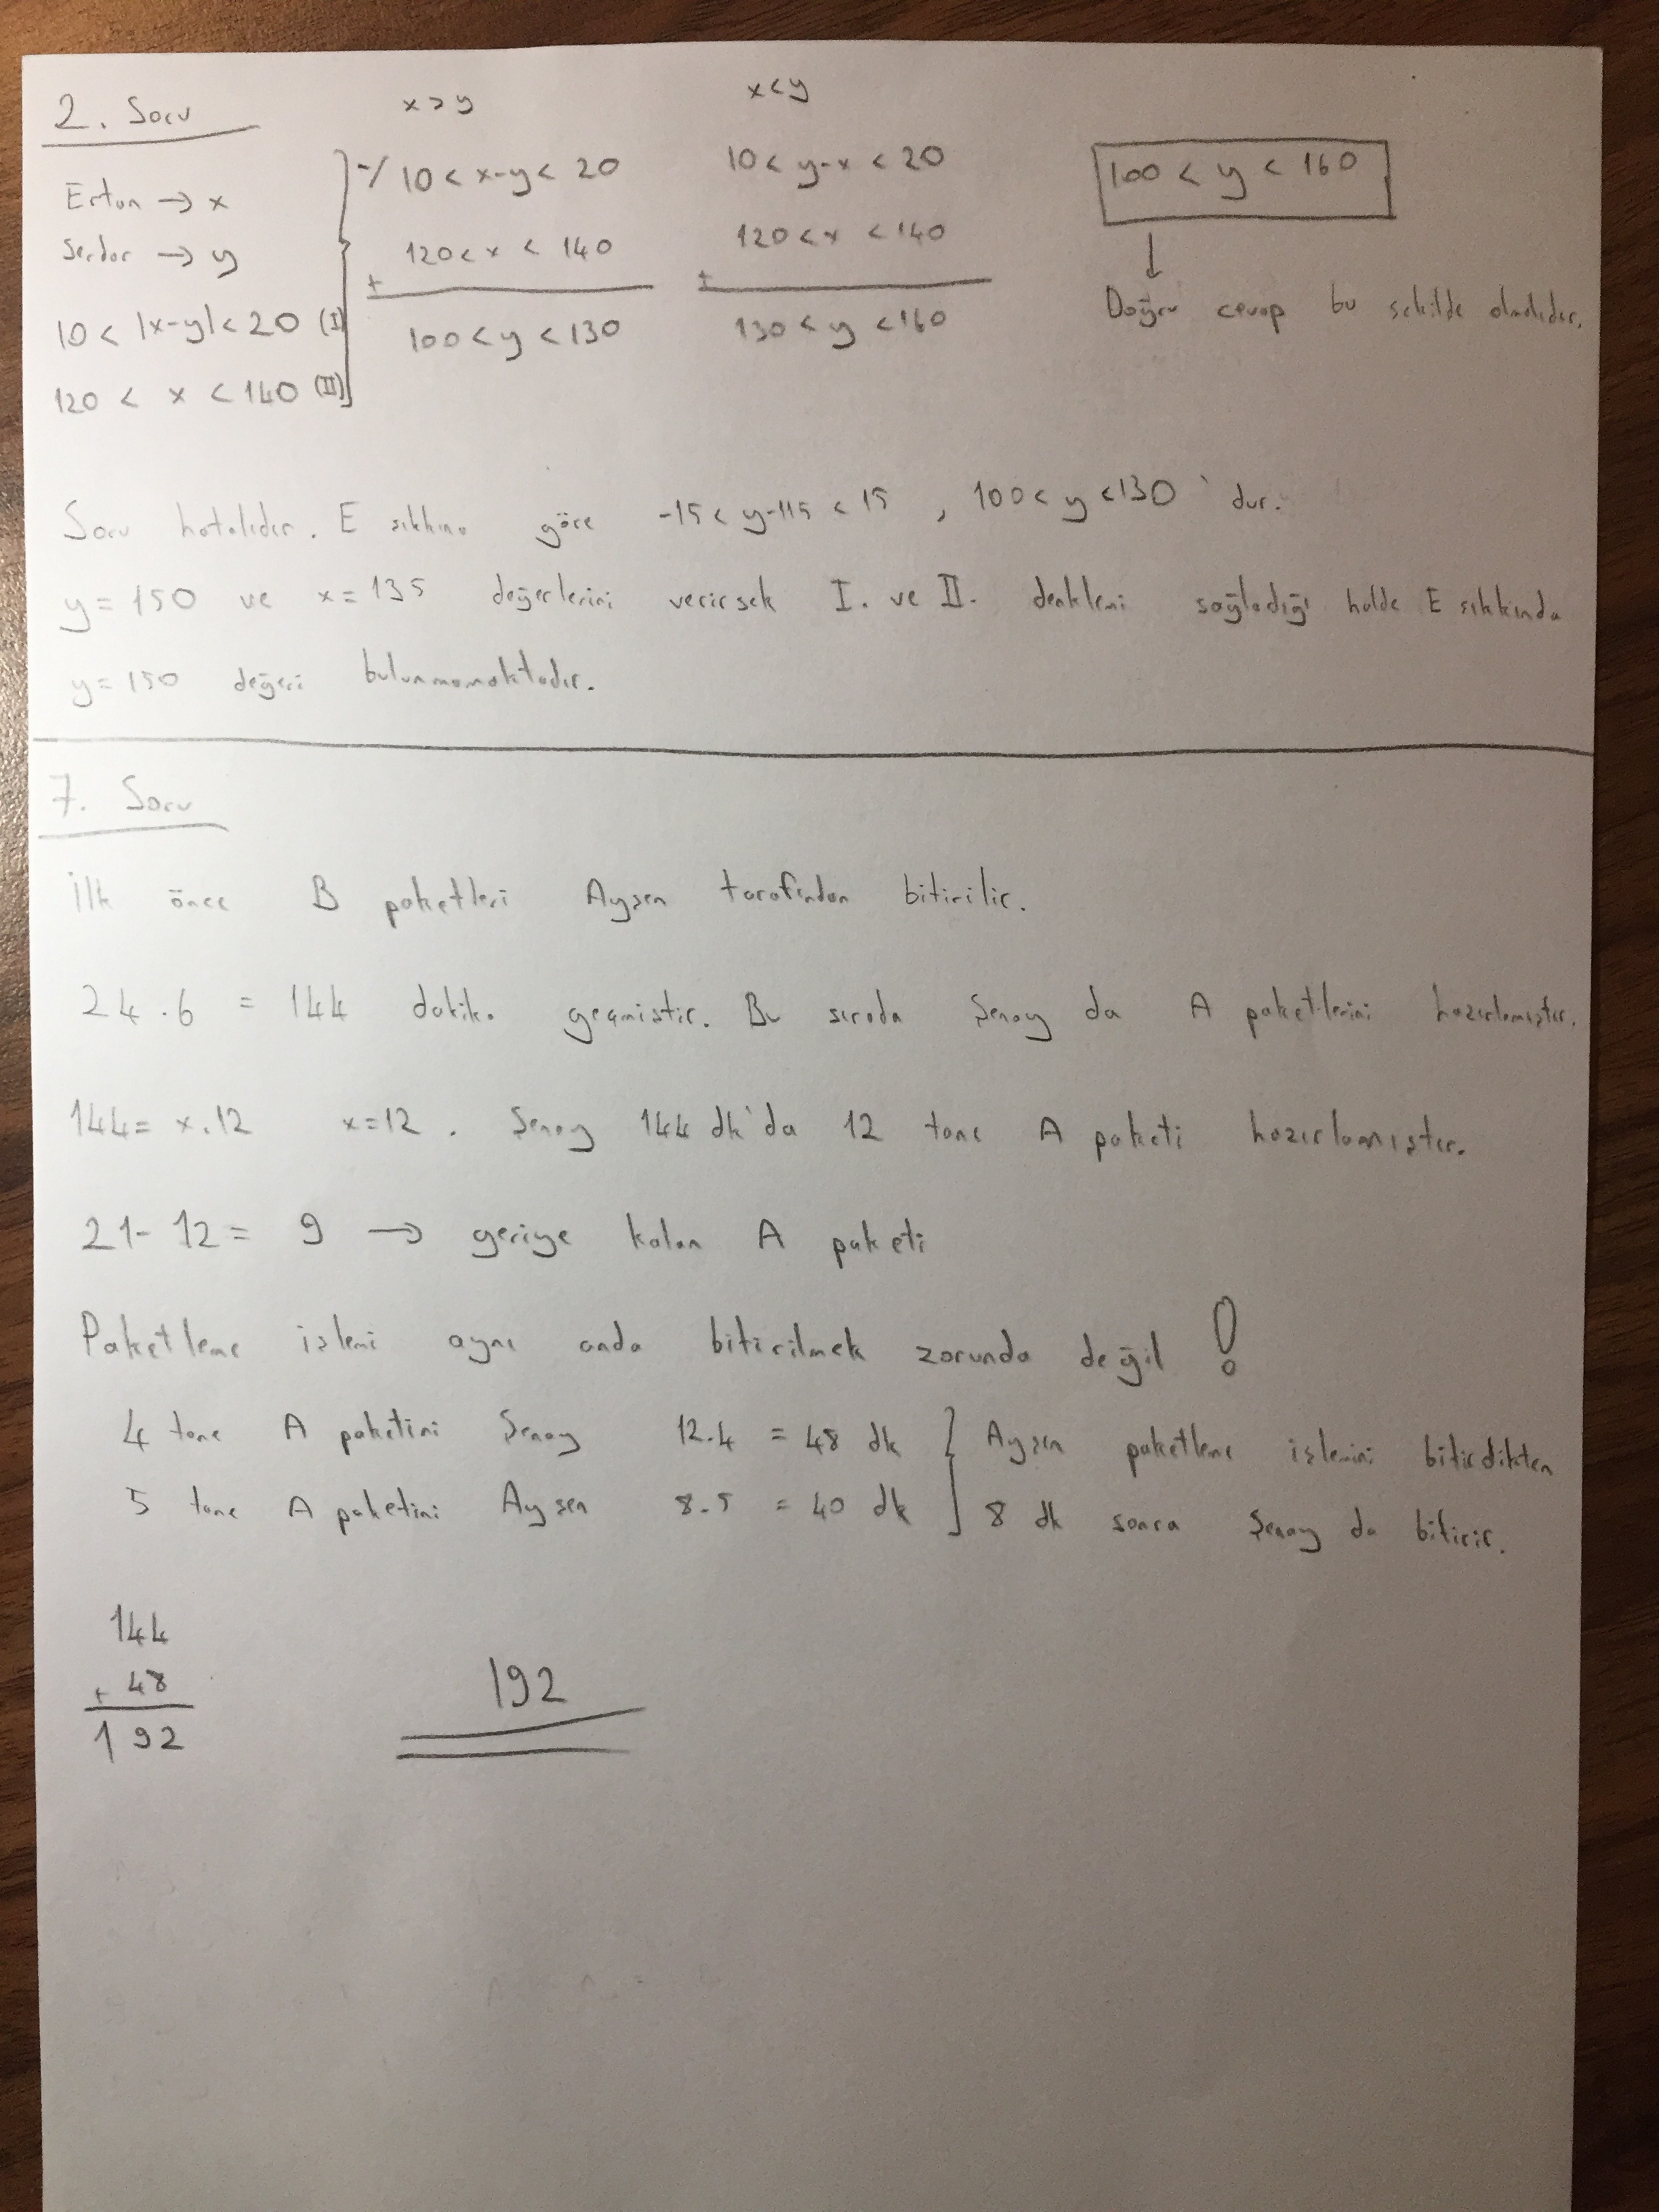 2. Soru
x > y
x < y
Ertan → x
Serdar → y
10 < |x-y| < 20 (I)
120 < x < 140 (II)
-/ 10 < x-y < 20
120 < x < 140
+
100 < y < 130
10 < y-x < 20
120 < x < 140
+
130 < y < 160
100 < y < 160
↓
Doğru cevap bu şekilde olmalıdır.
Soru hatalıdır. E şıkkına göre -15 < y-115 < 15 , 100 < y < 130 'dur.
y = 150 ve x = 135 değerlerini verirsek I. ve II. denklemi sağladığı halde E şıkkında
y = 150 değeri bulunmamaktadır.
7. Soru
İlk önce B paketleri Ayşen tarafından bitirilir.
24 . 6 = 144 dakika geçmiştir. Bu sırada Şenay da A paketlerini hazırlamıştır.
144 = x . 12 x = 12 . Şenay 144 dk'da 12 tane A paketi hazırlamıştır.
21 - 12 = 9 → geriye kalan A paketi
Paketleme işlemi aynı anda bitirilmek zorunda değil !
4 tane A paketini Şenay 12.4 = 48 dk } Ayşen paketleme işlemini bitirdikten
5 tane A paketini Ayşen 8.5 = 40 dk 8 dk sonra Şenay da bitirir.
144
+ 48
192
192